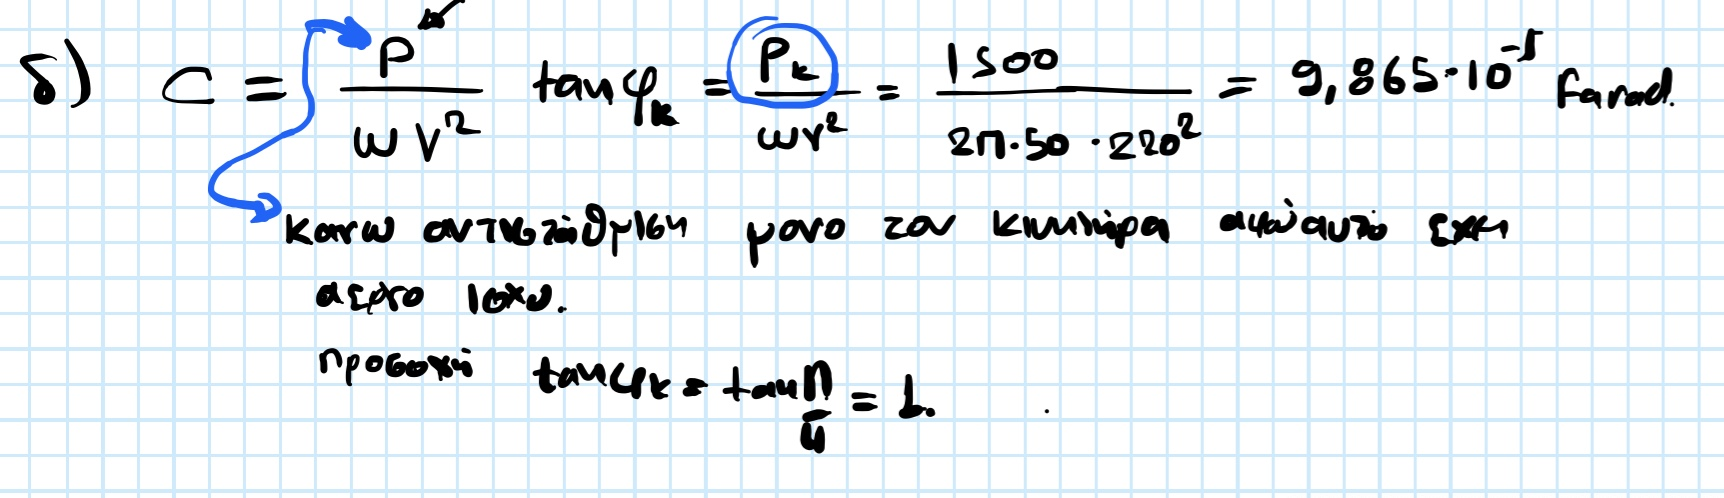 δ) C = P / ωV² tanφk = Pk / ωV² = 1500 / 2π·50·220² = 9,865·10⁻⁵ Farad.
κανω αντισταθμιση μονο τον κινητηρα αφου αυτο εχει
αεργο ισχυ.
προσοχη tanφκ = tan π/4 = 1.